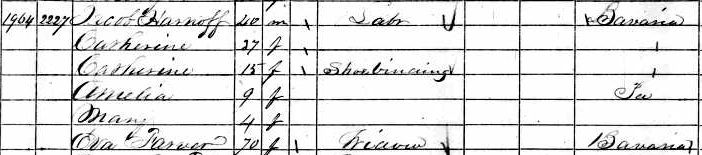 1964 2227 Jacob Harnoff 40 m 1 Labr Bavaria
Catherine 27 f 1 1
Catherine 15 f 1 Shoebinding 1
Amelia 9 f
Mary 4 f
Eva 70 f 1 Widow Bavaria